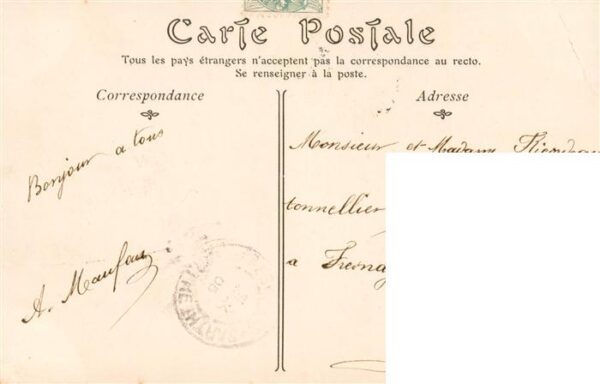 Carte Postale
Tous les pays étrangers n'acceptent pas la correspondance au recto.
Se renseigner à la poste.
Correspondance
Adresse
Bonjour a tous
A.
Monsieur et Madame
tonnellier
a